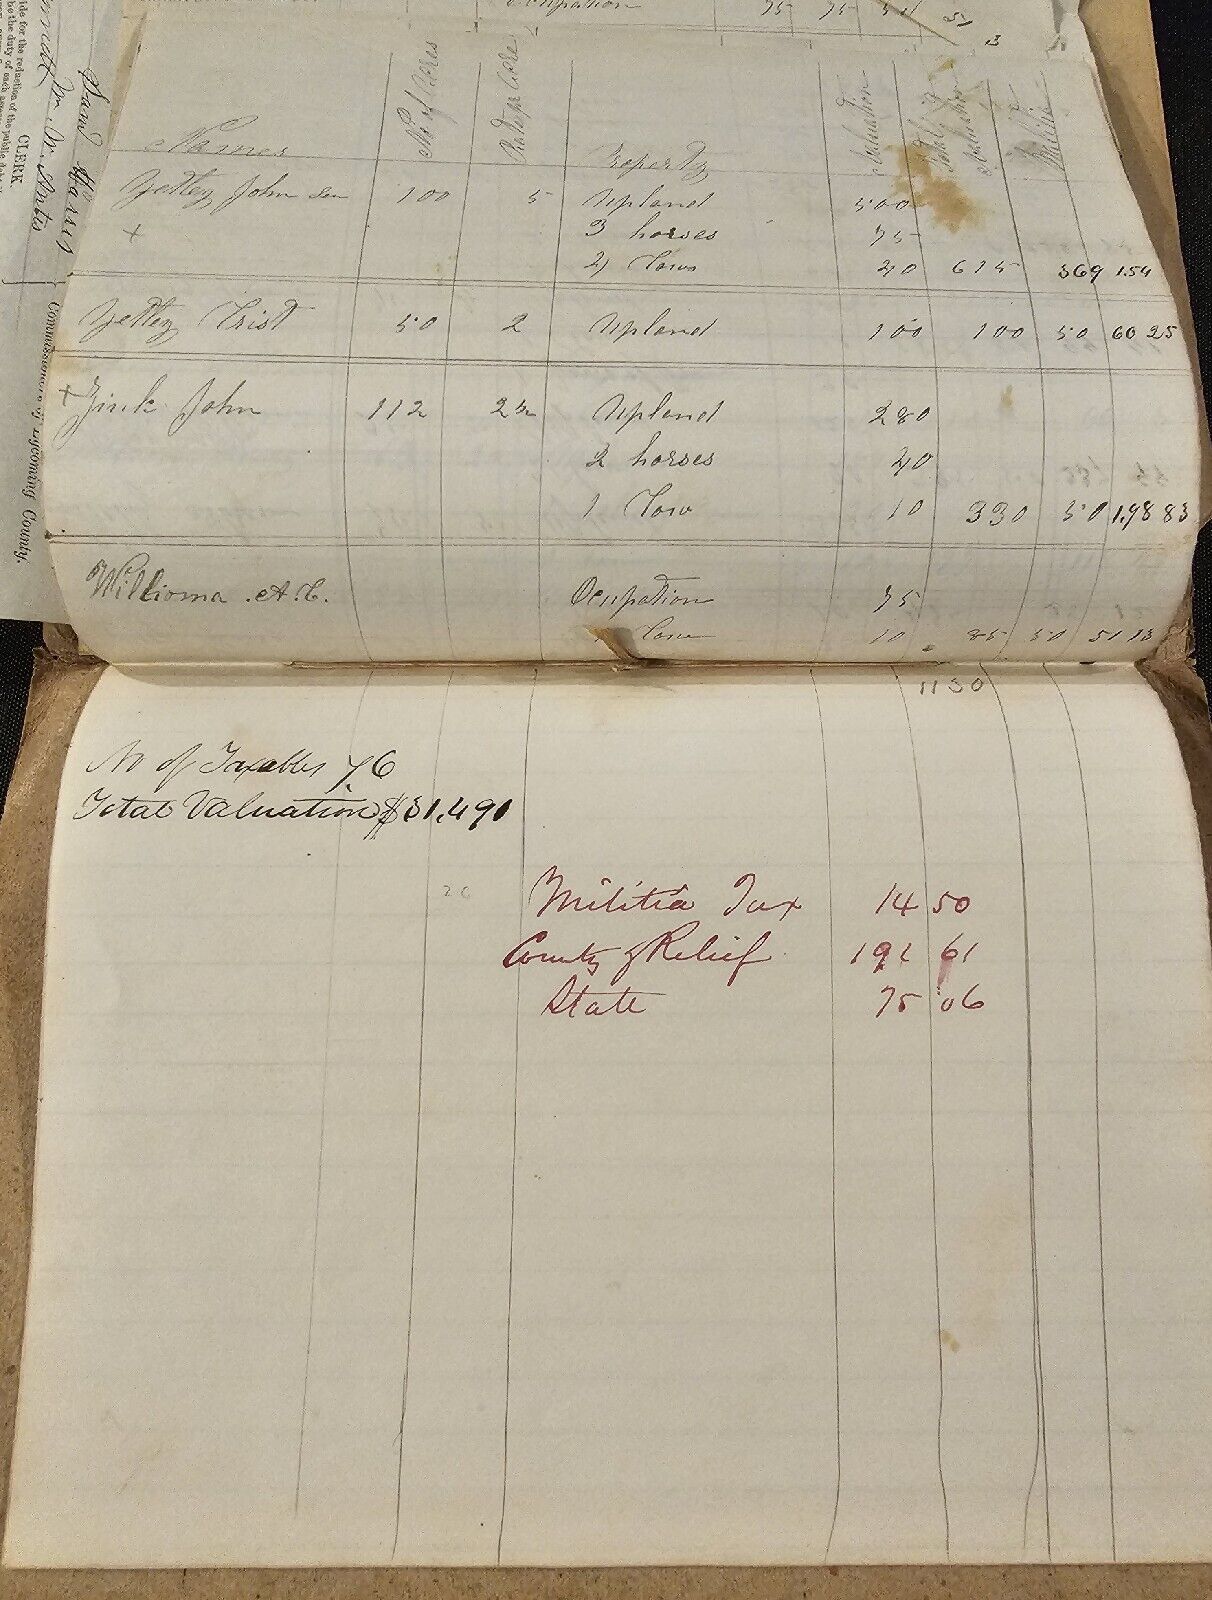 Occupation 75 75 50 51 13
ide for the reduction of the public
be the duty of each
CLERK
Saml Harris
Wm. W. Antis
Commissioners of Lycoming County.
Names No of Acres Rate pr Acre Property Valuation Total Valuation Militia
Yetter John Sen 100 5 Upland 500
+ 3 horses 75
4 Cows 40 615 369 154
Yetter Crist 50 2 Upland 100 100 50 60 25
+ Zink John 112 2½ Upland 280
2 horses 40
1 Cow 10 330 50 1.98 83
Willioma A.C. Ocupation 75
Cow 10 85 50 51 13
1130
No of Taxables 76
Total Valuation $31,491
20 Militia Tax 14 50
County & Relief 191 61
State 75 06